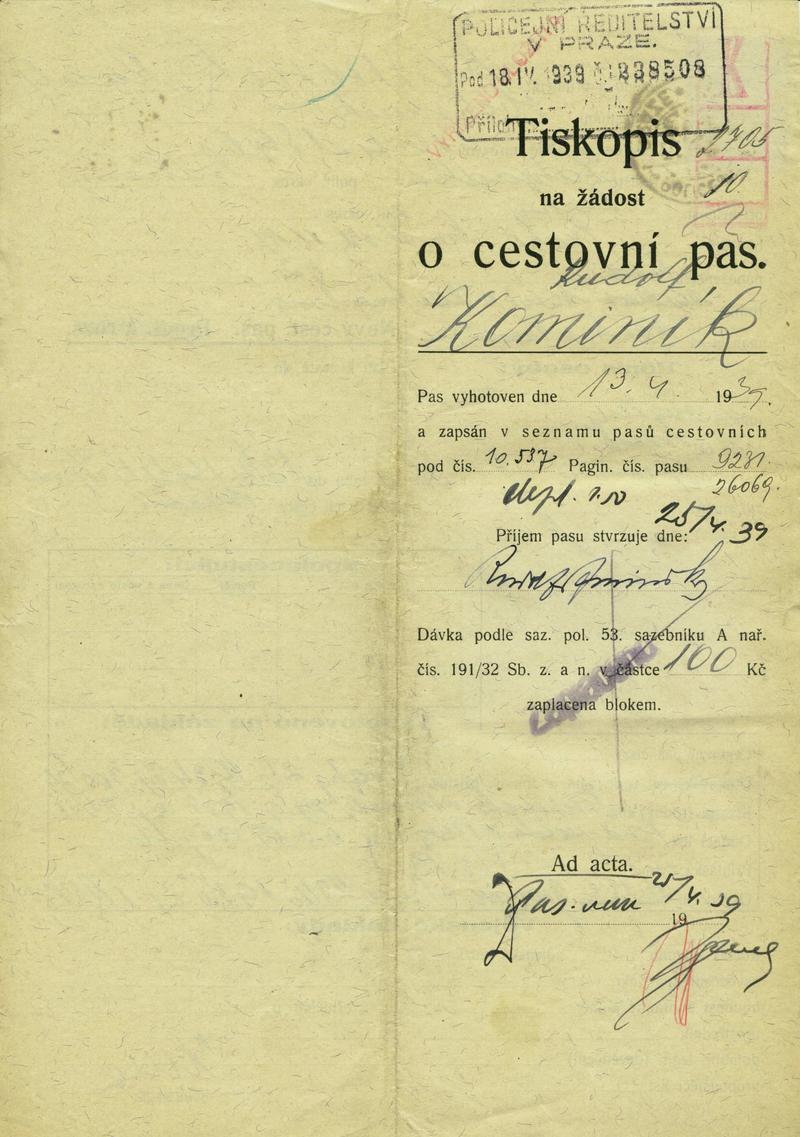 POLICEJNÍ ŘEDITELSTVÍ
V PRAZE.
Pod 18.IV. 1939 č. 238508
Příloh
Tiskopis 2705
na žádost 10
o cestovní pas.
Rudolf
Kominík
Pas vyhotoven dne 13. 4. 1939.
a zapsán v seznamu pasů cestovních
pod čís. 10.537 Pagin. čís. pasu 9231.
26069.
Příjem pasu stvrzuje dne: 25/4. 39
Dávka podle saz. pol. 53. sazebníku A nař.
čís. 191/32 Sb. z. a n. v částce 100 Kč
zaplacena blokem.
Ad acta.
25/4. 39
19